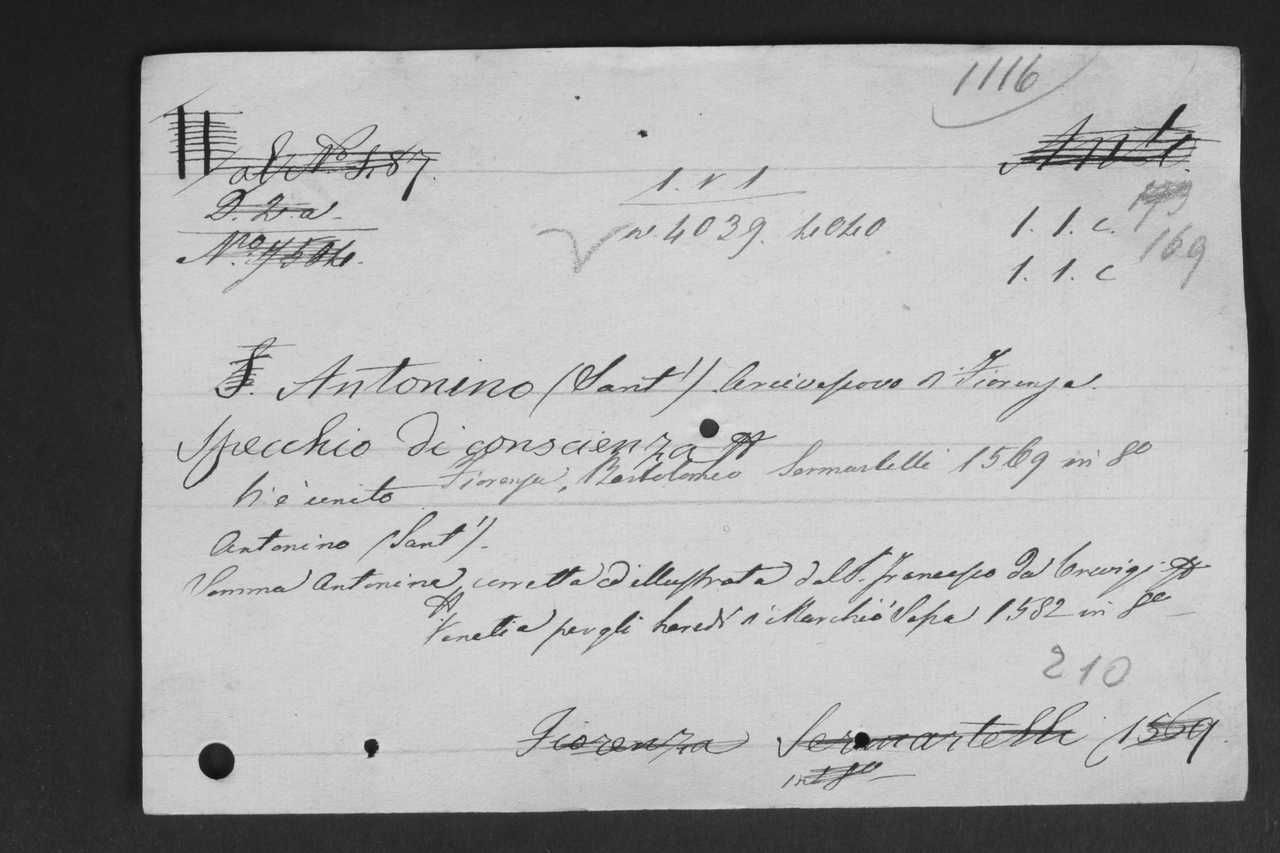 1116
Nº 487.
D. 2.a
1. v 1
Nro. 7504.
nº 4039. 4040
1. 1. c. 173
169
1. 1. c
S. Antonino (Sant') Arcivescovo di Fiorenza.
Specchio di conscienza
Fiorenza, Bartolomeo Sermartelli 1569 in 8º
Vi è unito
Antonino (Sant').
Somma Antonina, corretta ed illustrata dal P. Francesco da Trevigi
Venetia per gli heredi di Marchiò Sessa 1582 in 8º
210
Fiorenza Sermartelli 1569.
in 8º